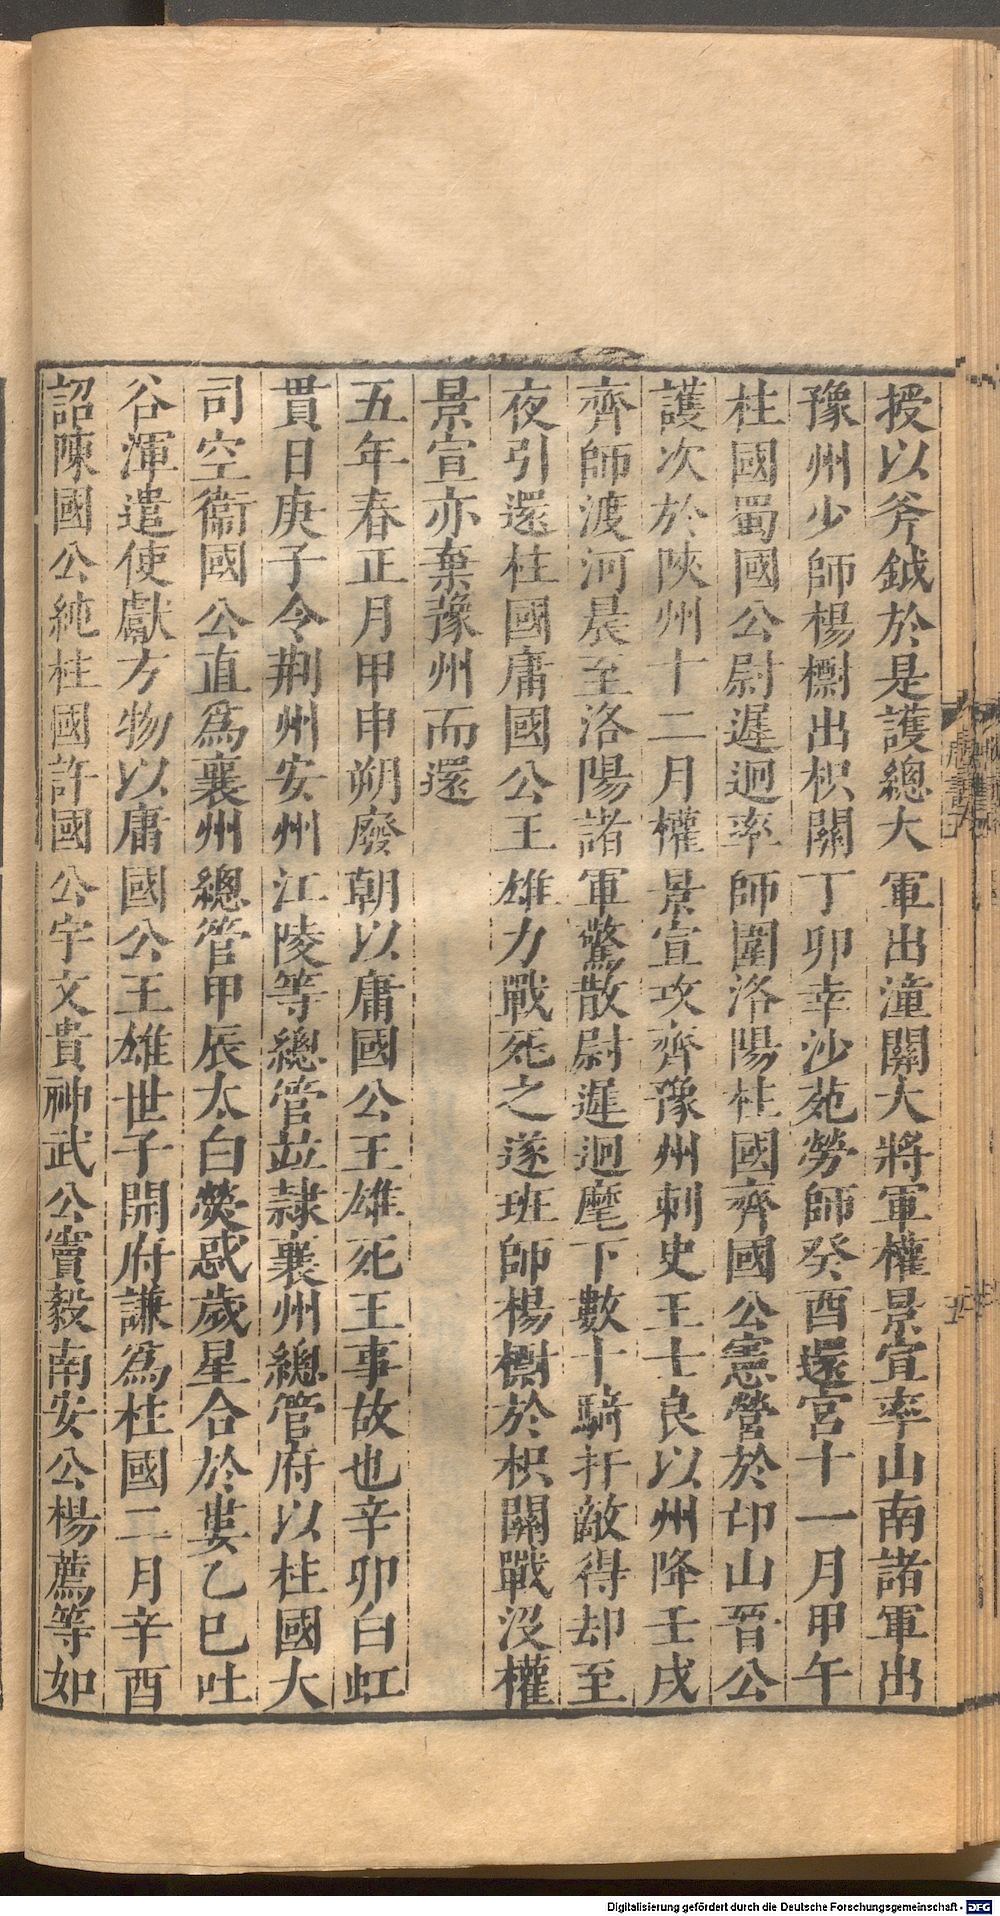 授以斧鉞於是護總大軍出潼關大將軍權景宣率山南諸軍出
豫州少師楊㯹出枳關丁卯幸沙苑勞師癸酉還宮十一月甲午
柱國蜀國公尉遲迥率師圍洛陽柱國齊國公憲營於邙山晉公
護次於陝州十二月權景宣攻齊豫州刺史王士良以州降壬戌
齊師渡河晨至洛陽諸軍驚散尉遲迥麾下數十騎扞敵得却至
夜引還柱國庸國公王雄力戰死之遂班師楊㯹於枳關戰沒權
景宣亦棄豫州而還
五年春正月甲申朔廢朝以庸國公王雄死王事故也辛卯白虹
貫日庚子令荆州安州江陵等總管竝隷襄州總管府以柱國大
司空衞國公直爲襄州總管甲辰太白熒惑歲星合於婁乙巳吐
谷渾遣使獻方物以庸國公王雄世子開府謙爲柱國二月辛酉
詔陳國公純柱國許國公宇文貴神武公竇毅南安公楊薦等如
Digitalisierung gefördert durch die Deutsche Forschungsgemeinschaft - DFG